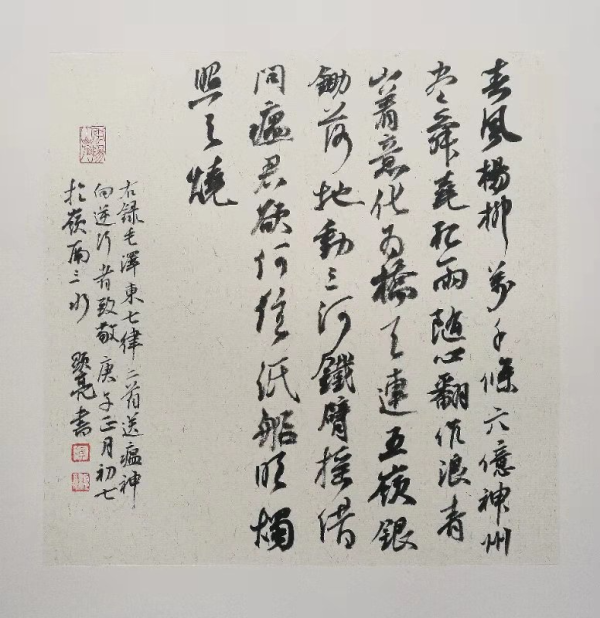 春風楊柳萬千條六億神州
盡舜堯紅雨隨心翻作浪青
山着意化為橋天連五嶺銀
鋤落地動三河鐵臂搖借
問瘟君欲何往紙船明燭
照天燒
右錄毛澤東七律二首送瘟神
向逆行者致敬庚子正月初七
於嶺南三水 亮書